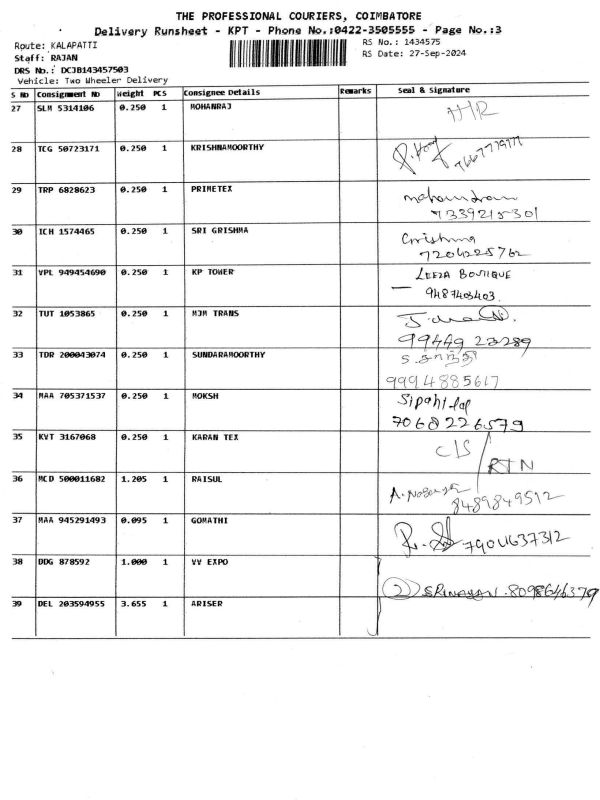 THE PROFESSIONAL COURIERS, COIMBATORE
Delivery Runsheet - KPT - Phone No.:0422-3505555 - Page No.:3
Route: KALAPATTI
RS No.: 1434575
Staff: RAJAN
RS Date: 27-Sep-2024
DRS No.: DCJB143457503
Vehicle: Two Wheeler Delivery
S No Consignment No Weight PCS Consignee Details Remarks Seal & Signature
27 SLM 5314106 0.250 1 MOHANRAJ
28 TCG 50723171 0.250 1 KRISHNAMOORTHY
29 TRP 6828623 0.250 1 PRIMETEX
7339215301
30 ICH 1574465 0.250 1 SRI GRISHMA Grishma
7204225762
31 VPL 949454690 0.250 1 KP TOWER LEEZA BOUTIQUE
9487403403
32 TUT 1053865 0.250 1 MJM TRANS
99449 23289
33 TDR 200043074 0.250 1 SUNDARAMOORTHY S. சாந்தி
9994885617
34 MAA 705371537 0.250 1 MOKSH Sipahilal
7068226579
35 KVT 3167068 0.250 1 KARAN TEX C/S
RTN
36 MCD 500011682 1.205 1 RAISUL
8489849512
37 MAA 945291493 0.095 1 GOMATHI
38 DDG 878592 1.000 1 VV EXPO
② 8098646379
39 DEL 203594955 3.655 1 ARISER